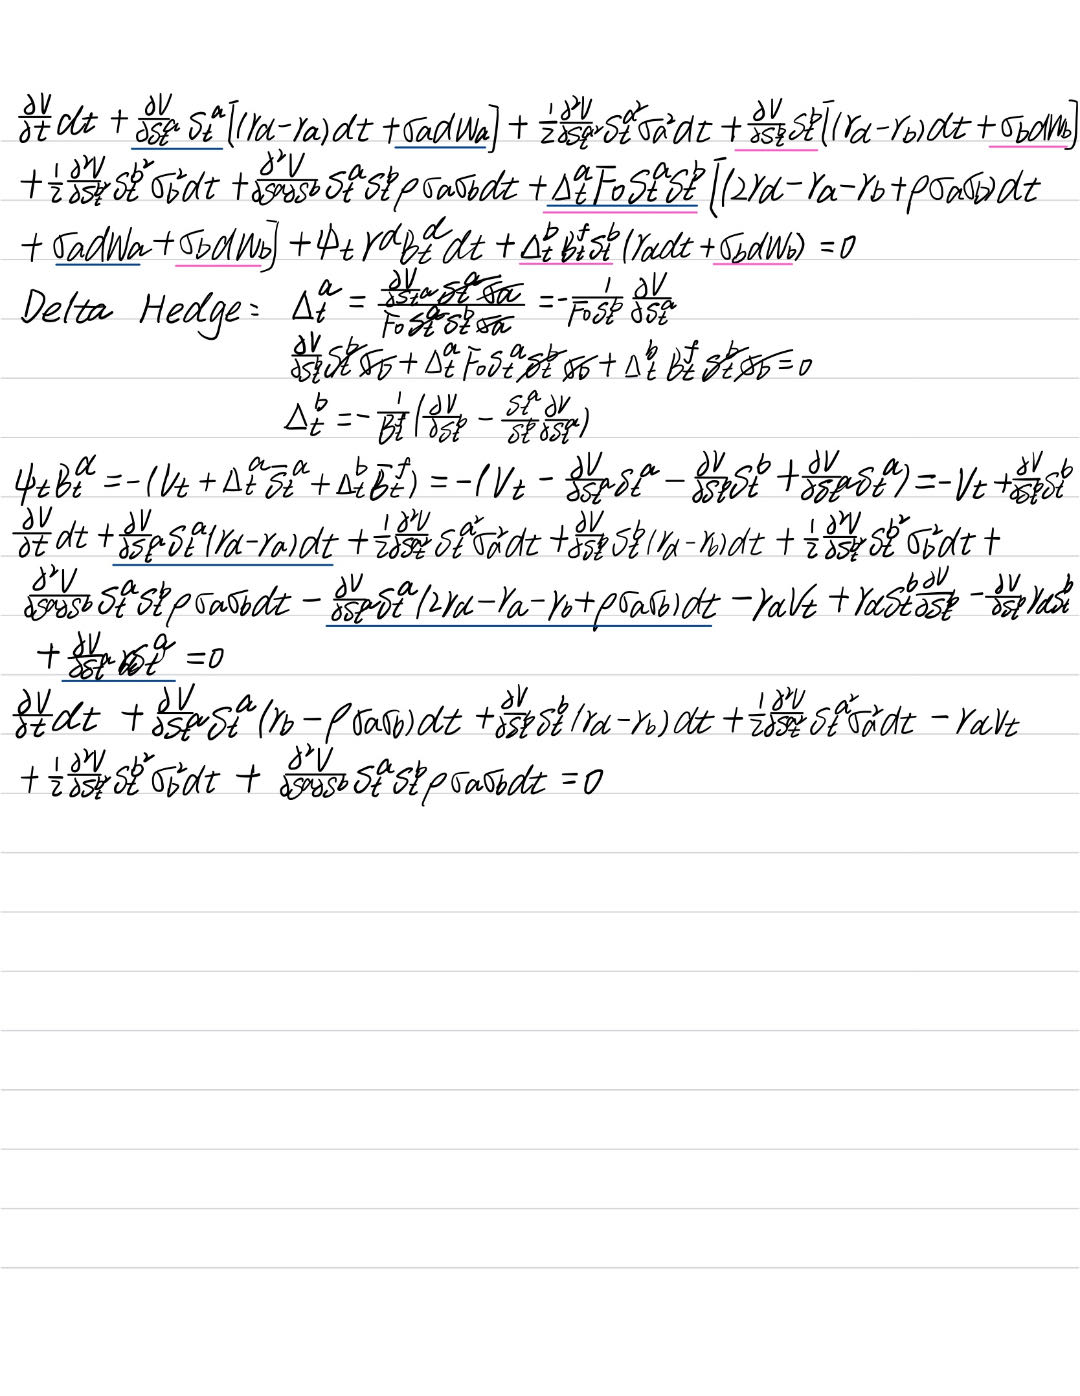 ∂V/∂t dt + ∂V/∂S_t^a S_t^a [(r_d - r_a) dt + σ_a dW_a] + 1/2 ∂²V/∂S_t^a² S_t^a² σ_a² dt + ∂V/∂S_t^b S_t^b [(r_d - r_b) dt + σ_b dW_b]
+ 1/2 ∂²V/∂S_t^b² S_t^b² σ_b² dt + ∂²V/∂S^a∂S^b S_t^a S_t^b ρ σ_a σ_b dt + Δ_t^a F_0 S_t^a S_t^b [(2r_d - r_a - r_b + ρ σ_a σ_b) dt
+ σ_a dW_a + σ_b dW_b] + ψ_t r^d B_t^d dt + Δ_t^b B_t^f S_t^b (r_d dt + σ_b dW_b) = 0
Delta Hedge: Δ_t^a = (∂V/∂S_t^a S_t^a σ_a)/(F_0 S_t^a S_t^b σ_a) = - 1/(F_0 S_t^b) ∂V/∂S_t^a
∂V/∂S_t^b S_t^b σ_b + Δ_t^a F_0 S_t^a S_t^b σ_b + Δ_t^b B_t^f S_t^b σ_b = 0
Δ_t^b = - 1/B_t^f (∂V/∂S_t^b - S_t^a/S_t^b ∂V/∂S_t^a)
ψ_t B_t^d = -(V_t + Δ_t^a S̄_t^a + Δ_t^b B̄_t^f) = -(V_t - ∂V/∂S_t^a S_t^a - ∂V/∂S_t^b S_t^b + ∂V/∂S_t^a S_t^a) = -V_t + ∂V/∂S_t^b S_t^b
∂V/∂t dt + ∂V/∂S_t^a S_t^a (r_d - r_a) dt + 1/2 ∂²V/∂S_t^a² S_t^a² σ_a² dt + ∂V/∂S_t^b S_t^b (r_d - r_b) dt + 1/2 ∂²V/∂S_t^b² S_t^b² σ_b² dt +
∂²V/∂S^a∂S^b S_t^a S_t^b ρ σ_a σ_b dt - ∂V/∂S_t^a S_t^a (2r_d - r_a - r_b + ρ σ_a σ_b) dt - r_d V_t + r_d S_t^b ∂V/∂S_t^b - ∂V/∂S_t^b r_d S_t^b
+ ∂V/∂S_t^a r_d S_t^a = 0
∂V/∂t dt + ∂V/∂S_t^a S_t^a (r_b - ρ σ_a σ_b) dt + ∂V/∂S_t^b S_t^b (r_d - r_b) dt + 1/2 ∂²V/∂S_t^a² S_t^a² σ_a² dt - r_d V_t
+ 1/2 ∂²V/∂S_t^b² S_t^b² σ_b² dt + ∂²V/∂S^a∂S^b S_t^a S_t^b ρ σ_a σ_b dt = 0